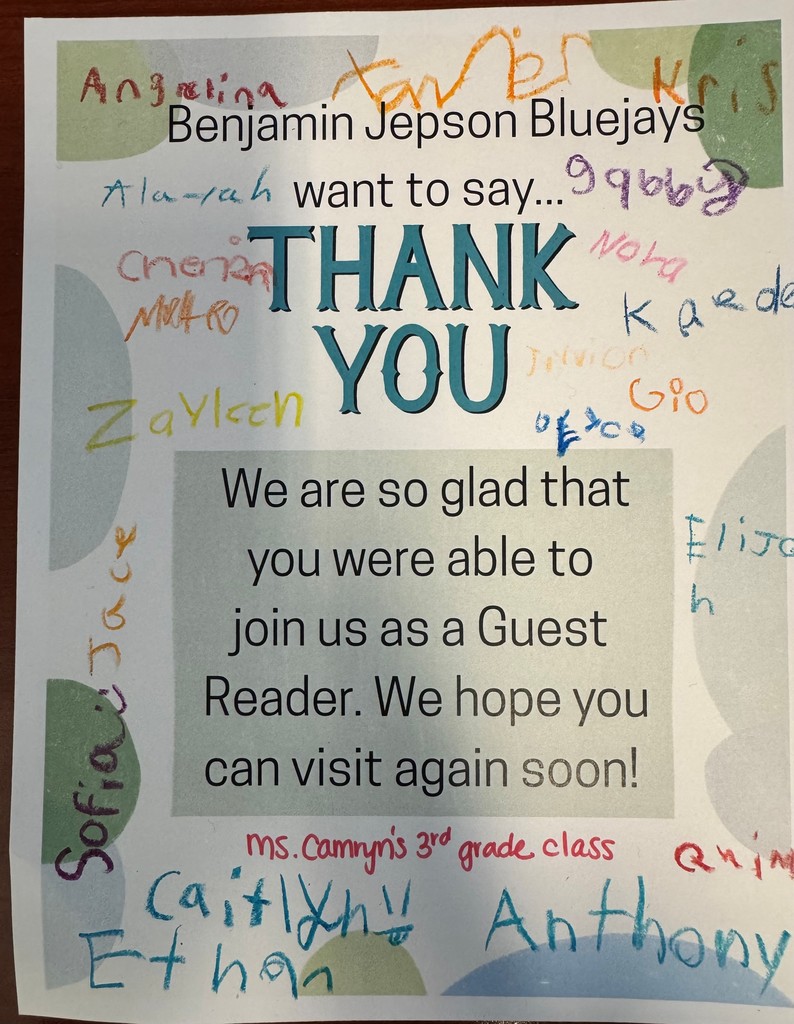 Angelina Xavier Kris
Benjamin Jepson Bluejays
Alayah want to say... gabby
THANK
Nora
Kaede
YOU
Gio
Zayleen
We are so glad that
you were able to
join us as a Guest
Reader. We hope you
can visit again soon!
Elija
h
Jace
Sofia
ms. Camryn's 3rd grade class
Quin
Caitlyn
Ethan
Anthony